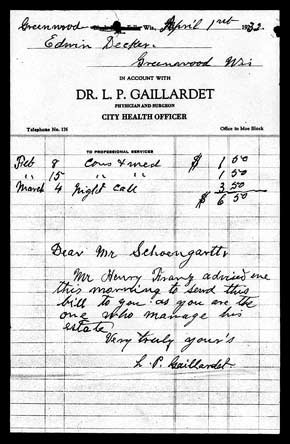 Greenwood Wis., April 1rst 1932
Edwin Decker.
Greenwood Wis
IN ACCOUNT WITH
DR. L. P. GAILLARDET
PHYSICIAN AND SURGEON
CITY HEALTH OFFICER
Telephone No. 176 Office to Moe Block
TO PROFESSIONAL SERVICES
Feb 8 Cons & med $ 1 50
" 15 " " 1 50
March 4 Night Call 3 50
$ 6 50
Dear Mr Schoengartt,
Mr Henry advised me
this morning to send this
bill to you as you are the
one who manage his
estate
Very truly your's
L. P. Gaillardet